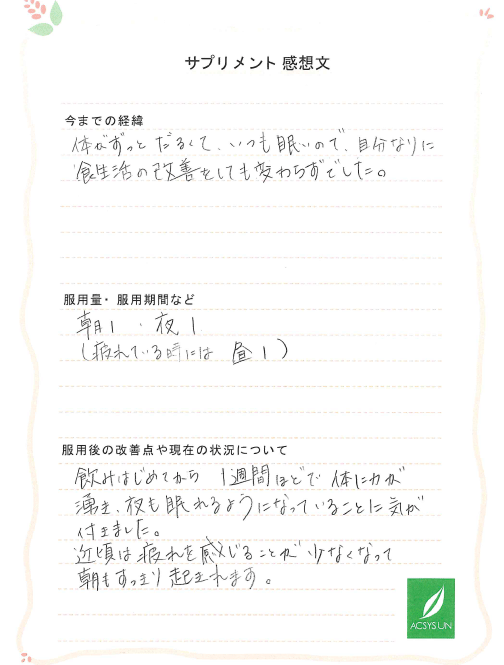 サプリメント 感想文
今までの経緯
体がずっと だるくて、いつも眠いので、自分なりに
食生活の改善をしても変わらずでした。
服用量・服用期間など
朝1 ・ 夜1
(疲れている時には 昼1)
服用後の改善点や現在の状況について
飲みはじめてから 1週間ほどで 体に力が
湧き、夜も眠れるようになっていることに気が
付きました。
近頃は疲れを感じることが少なくなって
朝もすっきり起きれます。
ACSYSUN